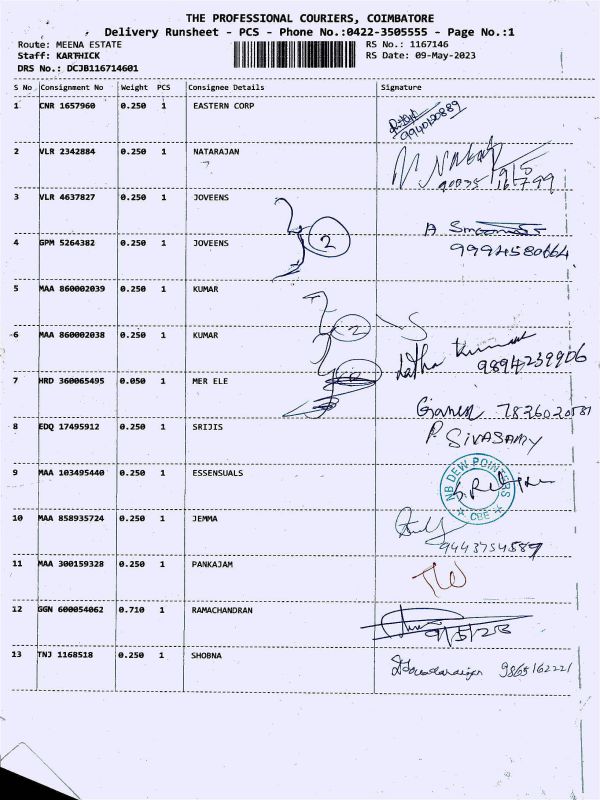 THE PROFESSIONAL COURIERS, COIMBATORE
Delivery Runsheet - PCS - Phone No.:0422-3505555 - Page No.:1
Route: MEENA ESTATE RS No.: 1167146
Staff: KARTHICK RS Date: 09-May-2023
DRS No.: DCJB116714601
S No Consignment No Weight PCS Consignee Details Signature
1 CNR 1657960 0.250 1 EASTERN CORP
9940120889
2 VLR 2342884 0.250 1 NATARAJAN
3 VLR 4637827 0.250 1 JOVEENS
2 A
4 GPM 5264382 0.250 1 JOVEENS 9994580664
5 MAA 860002039 0.250 1 KUMAR
2
6 MAA 860002038 0.250 1 KUMAR Latha Kumar
9894239906
7 HRD 360065495 0.050 1 MER ELE
Ganesh 7826020581
8 EDQ 17495912 0.250 1 SRIJIS P SIVASAMY
9 MAA 103495440 0.250 1 ESSENSUALS
NB DEW POINTERS
CBE
10 MAA 858935724 0.250 1 JEMMA
9443754589
11 MAA 300159328 0.250 1 PANKAJAM
12 GGN 600054062 0.710 1 RAMACHANDRAN
9/5/23
13 TNJ 1168518 0.250 1 SHOBNA
9865162221